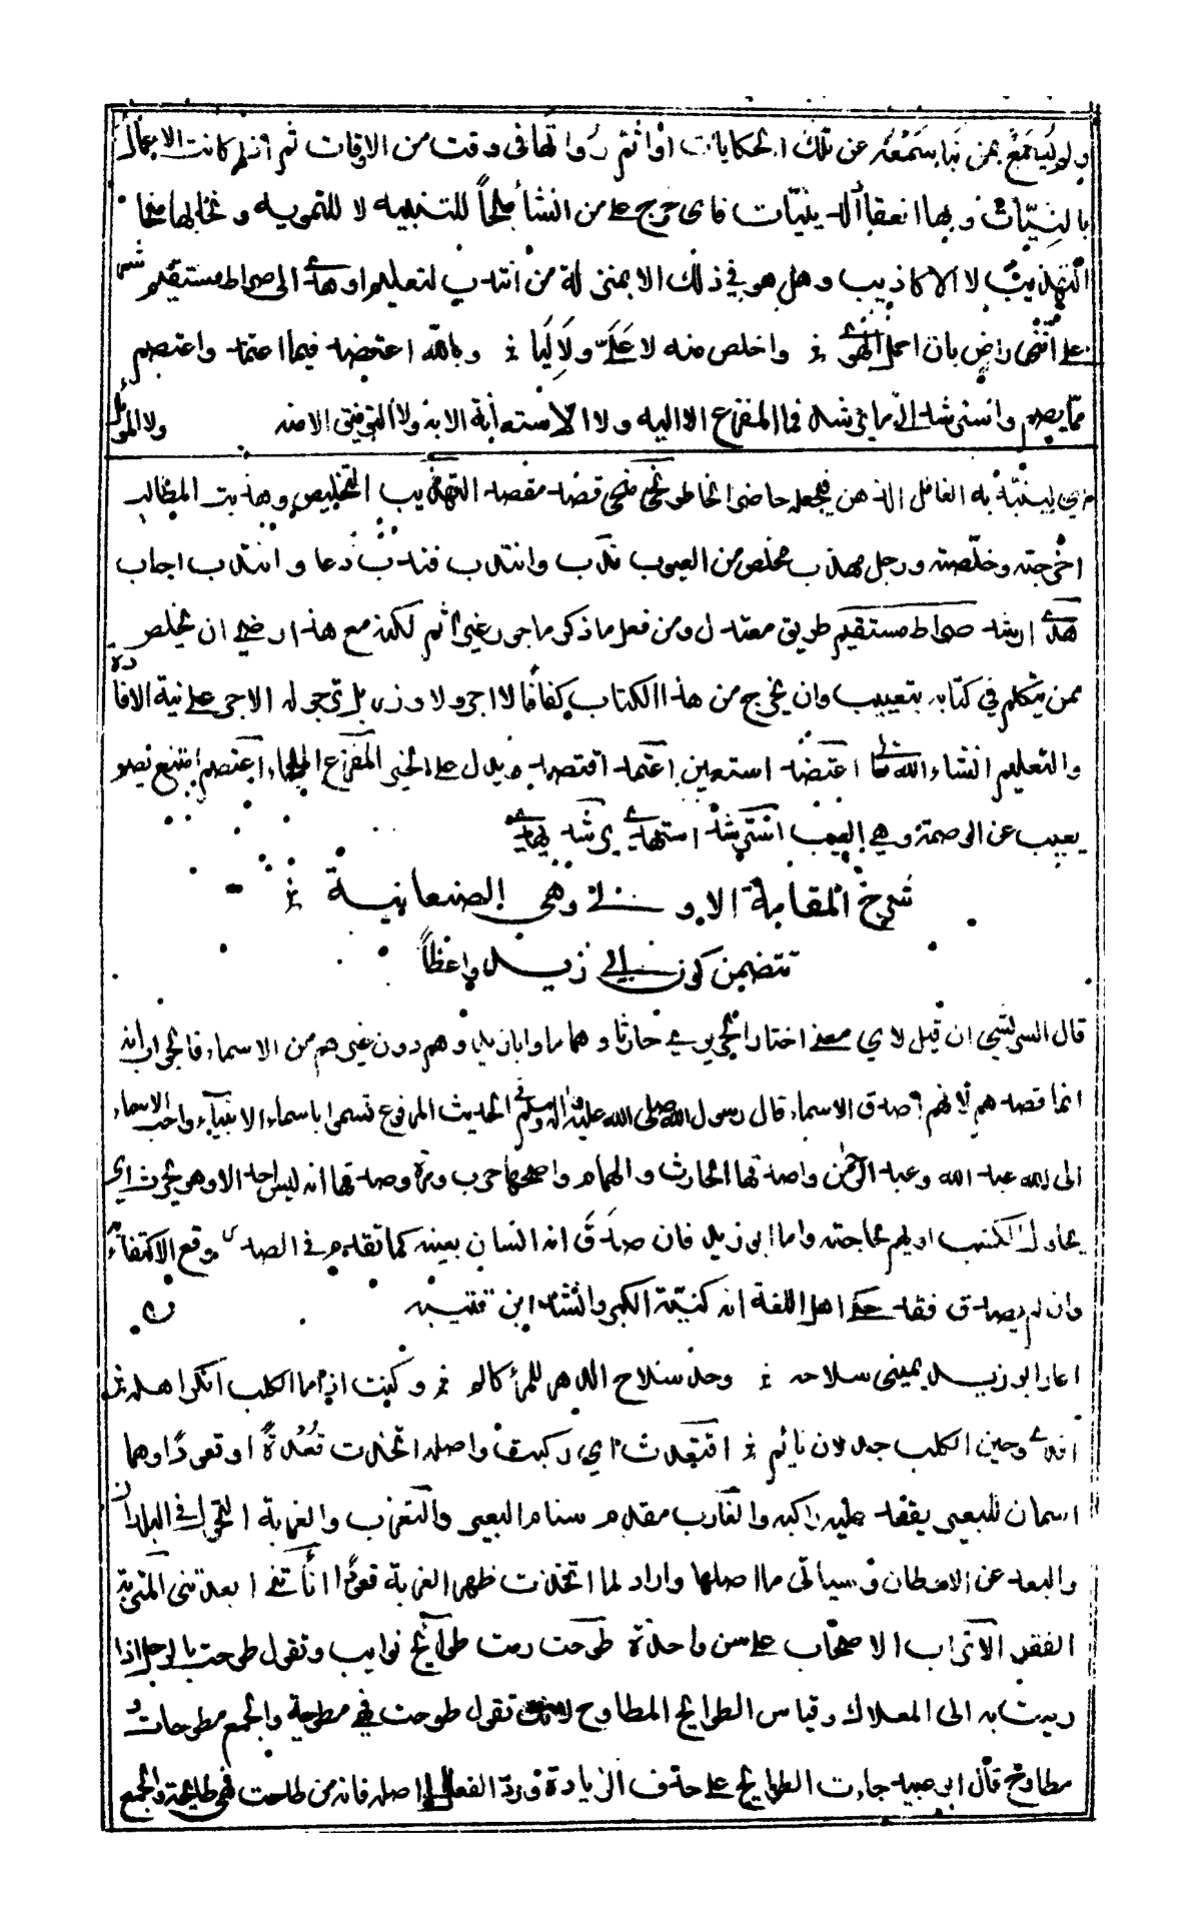 ولم يسمع بمن نبا بسمعه عن تلك الحكايات او اثم رواتها في وقت من الاوقات ثم اذا كانت الاعمال
بالنيات وبها انعقاد الدينيات فاي حرج على من انشأ ملحا للتنبيه لا للتمويه ونحا بها منحا
التهذيب لا الاكاذيب وهل هو في ذلك الا بمنزلة من انتدب لتعليم او هدى الى صراط مستقيم شعر
على انني راض بان احمل الهوى واخلص منه لا علي ولا ليا وبالله اعتضد فيما اعتمد واعتصم
مما يصم واسترشد الى ما يرشد فما المفزع الا اليه ولا الاستعانة الا به ولا التوفيق الا منه ولا الموئل
لينتبه به الغافل الذهن فيجعله حاضر الخاطر نحى منحى قصد مقصد التهذيب التخليص وهذبت المطالب
اخرجته وخلصته ورجل مهذب مخلص من العيوب ندب وانتدب فندب دعا وانتدب اجاب
هدى ارشد صراط مستقيم طريق معتدل ومن فعل ما ذكر ماجور غير اثم لكنه مع هذا رضي ان يخلص
ممن يتكلم في كتابه بتعييب وان يخرج من هذا الكتاب كفافا لا اجر ولا وزر بل نرجو له الاجر على نية الافادة
والتعليم انشاء الله تعالى اعتضد استعين اعتمد اقتصد يدل على الخير المفزع الملجاء اعتصم امتنع يصم
يعيب عن الوصمة وهي العيب استرشد استهدي يرشد يهدي
شرح المقامة الاولى وهي الصنعانية
تتضمن كون ابي زيد واعظا
قال الشريشي ان قيل لاي معنى اختار الحريري حارثا وهماما وابا زيد وهم دون غيرهم من الاسماء فالجواب انه
انما قصدهم لانهم اصدق الاسماء قال رسول الله صلى الله عليه واله وسلم في الحديث المرفوع تسموا باسماء الانبياء واحب الاسماء
الى الله عبد الله وعبد الرحمن واصدقها الحارث والهمام واقبحها حرب ومرة وصدقها انه ليس احد الا وهو يحرث اي
يحاول الكسب او يهم بحاجته واما ابو زيد فان صدق انه انسان بعينه كما تقدم في الصدر وقع الاكتفاء به
وان لم يصدق فقد حكى اهل اللغة انه كنية الكبر وانشد ابن قتيبة
اعار ابو زيد يميني سلاحه وحد سلاح الدهر للمرء كالم وكنت اذا ما الكلب انكر اهله
افدى وحين الكلب جذلان نايم اقتعدت اي ركبت واصله اتخذت قعدة او قعودا وهما
اسمان للبعير يقعد عليه راكبه والغارب مقدم سنام البعير والتغرب والغربة التحول في البلدان
والبعد عن الاوطان وسياتي ما اصلها واراد لما اتخذت ظهر الغربة قعودا انأتني ابعدتني المتربة
الفقر الاتراب الاصحاب على سن واحدة طوحت رمت طوائح نوايب وتقول طوحت بالرجل اذا
رميت به الى المهلاك وقياس الطوايح المطاوح لانك تقول طوحت فهي مطوحة والجمع مطوحات و
مطاوح قال ابو عبيد جاءت الطوايح على حذف الزيادة ورد الفعل الى اصله فانه من طاحت فهي طايحة والجمع